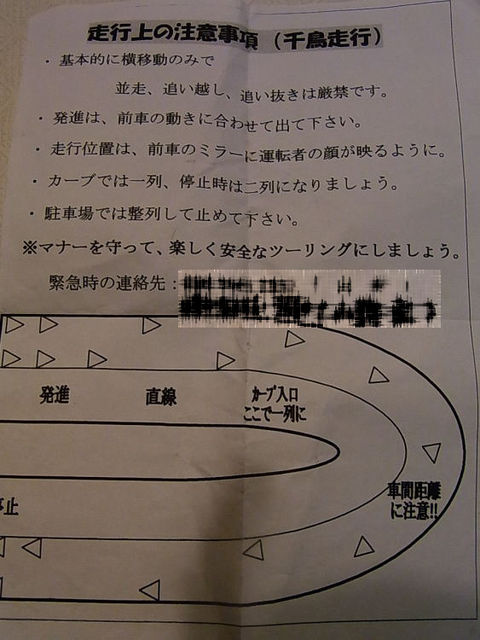 走行上の注意事項（千鳥走行）
・基本的に横移動のみで
並走、追い越し、追い抜きは厳禁です。
・発進は、前車の動きに合わせて出て下さい。
・走行位置は、前車のミラーに運転者の顔が映るように。
・カーブでは一列、停止時は二列になりましょう。
・駐車場では整列して止めて下さい。
※マナーを守って、楽しく安全なツーリングにしましょう。
緊急時の連絡先：
発進
直線
カーブ入口
ここで一列に
車間距離
に注意!!
止